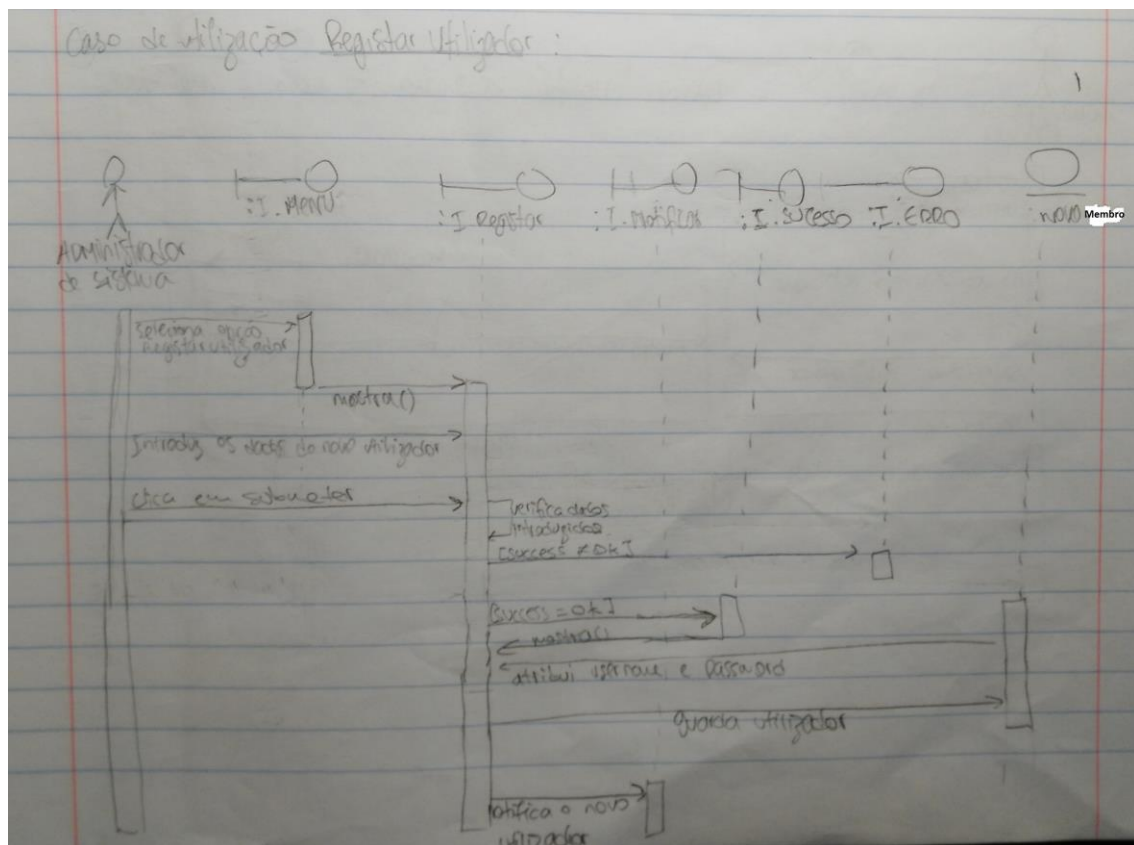 Caso de utilização Registar Utilizador :
1
:I.MENU
:I.Registar
:I.Notificar
:I.Sucesso
:I.ERRO
:novo Membro
Administrador
de sistema
Seleciona opção
Registar utilizador
mostra()
Introduz os dados do novo utilizador
clica em submeter
verifica dados
introduzidos
[success ≠ Ok]
[success = Ok]
mostra()
atribui username e password
guarda utilizador
notifica o novo
utilizador